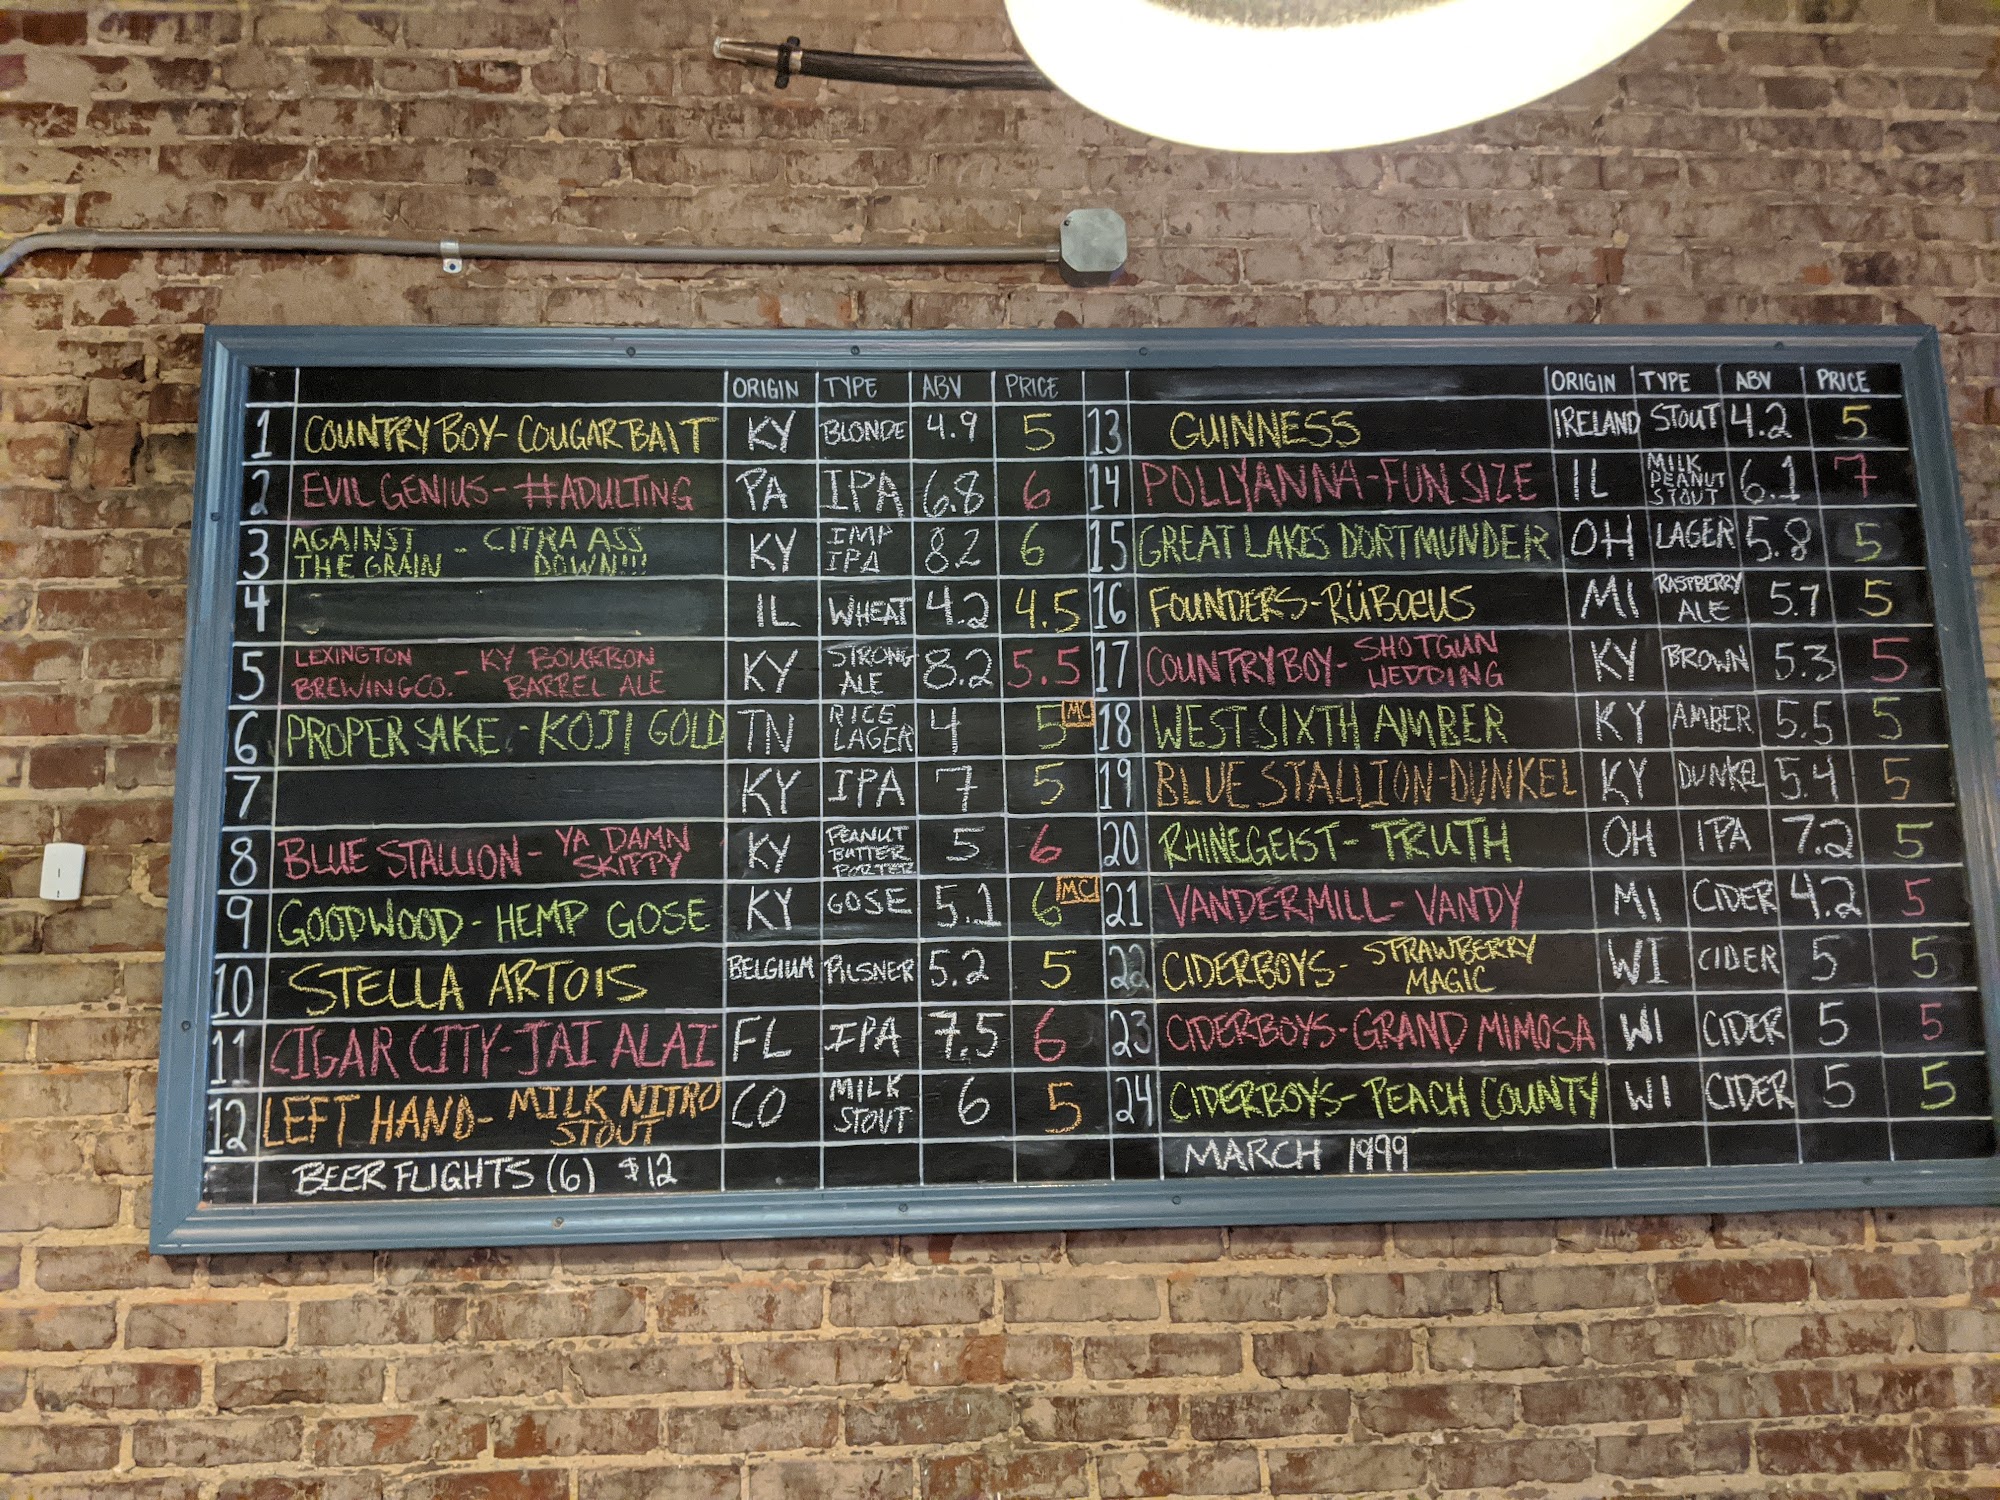 ORIGIN TYPE ABV PRICE
1 COUNTRY BOY- COUGAR BAIT KY BLONDE 4.9 5
2 EVIL GENIUS- #ADULTING PA IPA 6.8 6
3 AGAINST THE GRAIN - CITRA ASS DOWN!!! KY IMP IPA 8.2 6
4 IL WHEAT 4.2 4.5
5 LEXINGTON BREWING CO. - KY BOURBON BARREL ALE KY STRONG ALE 8.2 5.5
6 PROPER SAKE - KOJI GOLD TN RICE LAGER 4 5 MC
7 KY IPA 7 5
8 BLUE STALLION - YA DAMN SKIPPY KY PEANUT BUTTER PORTER 5 6
9 GOODWOOD - HEMP GOSE KY GOSE 5.1 6 MC
10 STELLA ARTOIS BELGIUM PILSNER 5.2 5
11 CIGAR CITY-JAI ALAI FL IPA 7.5 6
12 LEFT HAND- MILK NITRO STOUT CO MILK STOUT 6 5
BEER FLIGHTS (6) $12
ORIGIN TYPE ABV PRICE
13 GUINNESS IRELAND STOUT 4.2 5
14 POLLYANNA-FUN SIZE IL MILK PEANUT STOUT 6.1 7
15 GREAT LAKES DORTMUNDER OH LAGER 5.8 5
16 FOUNDERS-RÜBŒUS MI RASPBERRY ALE 5.7 5
17 COUNTRY BOY- SHOTGUN WEDDING KY BROWN 5.3 5
18 WEST SIXTH AMBER KY AMBER 5.5 5
19 BLUE STALLION-DUNKEL KY DUNKEL 5.4 5
20 RHINEGEIST- TRUTH OH IPA 7.2 5
21 VANDERMILL- VANDY MI CIDER 4.2 5
22 CIDERBOYS- STRAWBERRY MAGIC WI CIDER 5 5
23 CIDERBOYS-GRAND MIMOSA WI CIDER 5 5
24 CIDERBOYS-PEACH COUNTY WI CIDER 5 5
MARCH 1999